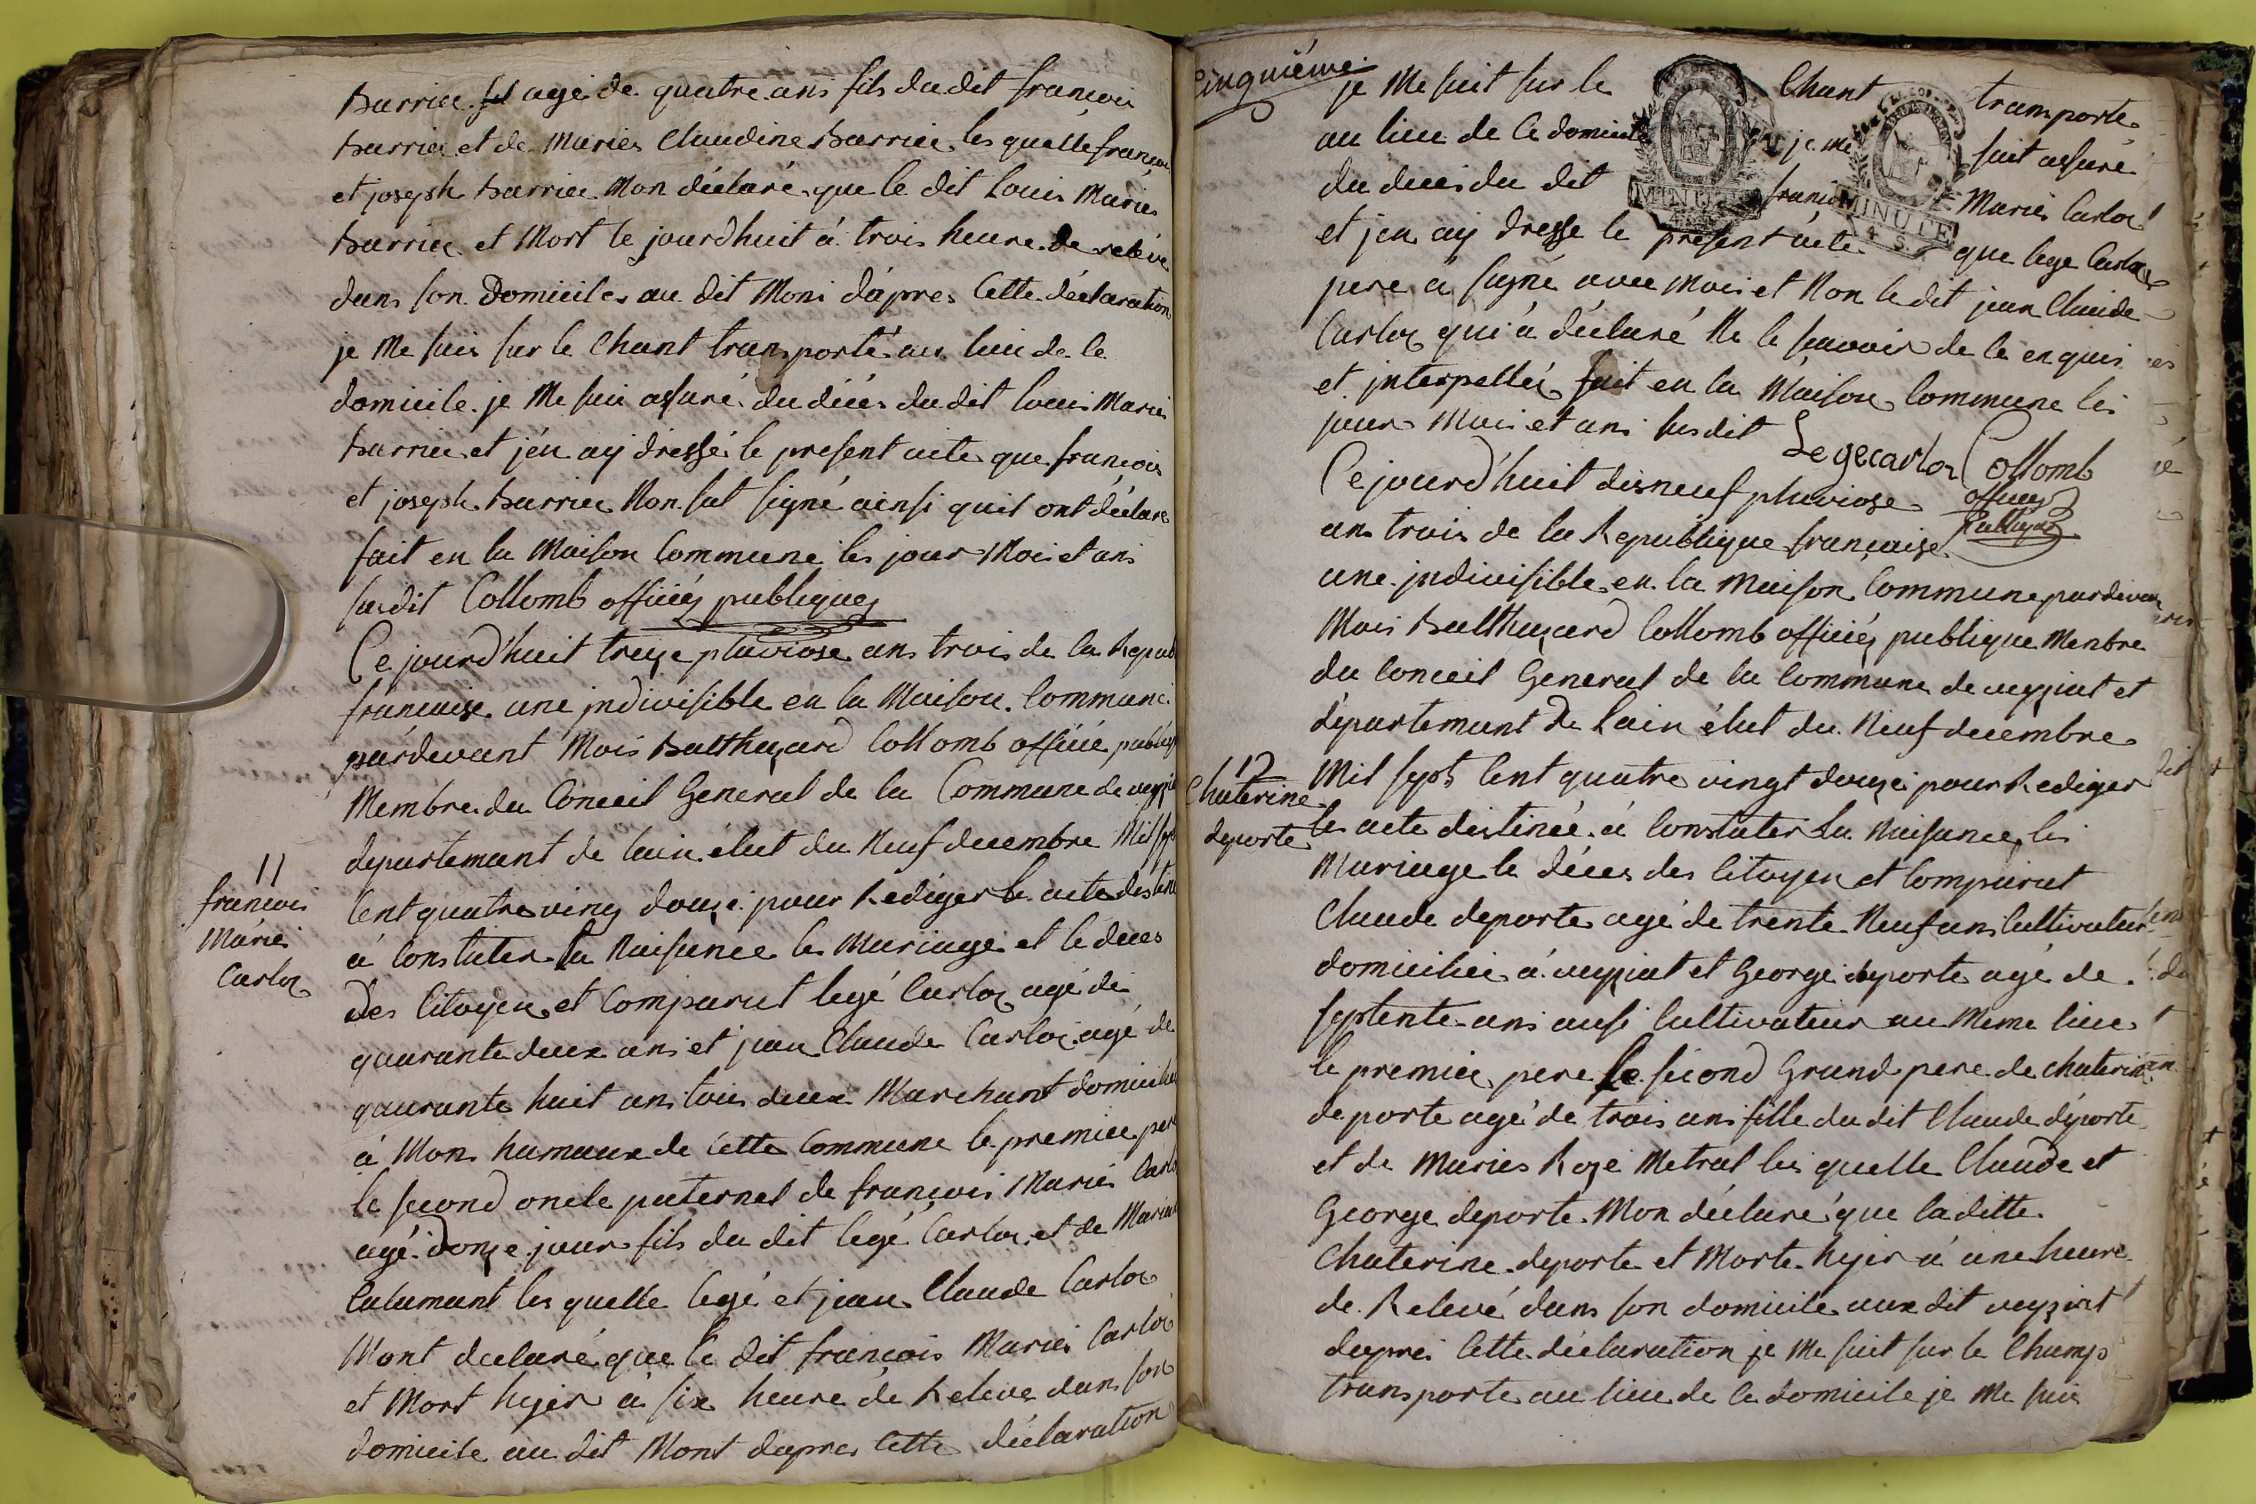 Barrier fil agé de quatre ans fils du dit francois
Barrier et de Maries Claudine Barrier les quelle francois
et joseph Barrier Mon déclaré que le dit Louis Maries
Barrier et Mort le jourdhuit à trois heure de relevé
dans son Domiciles au dit Mons dápres Cette déclaration
je Me suis sur le Chant transporté au lieu de le
domicile je Me suis assuré du décés du dit Louis Maries
Barrier et jén ay dressé le present acte que francois
et joseph Barrier Non sut signé ainsi quil ont déclare
fait en la Maison Commune les jour Mois et ans
susdit Collomb officiés publiques
Ce jourd'huit treize pluviose ans trois de la Repub
francaise une jndivisible en la Maison Commune
pardevant Mois Balthazard Collomb officié publiq
Membre du Conceil General de la Commune de veyzia
departemant de lain élut du Neuf decembre Mil sep
Cent quatre ving douze pour Rediger le acte destine
à Constater la Naisance les Mariage et le déces
Des Citoyen et Comparut legé Carloz agé de
quarante deux ans et jean Claude Carloz agé de
quarante huit ans tous deux Marchant domicilie
à Mons hamaux de Cette Commune le premier pere
le second oncle paternel de francois Maries Carlo
agé donze jour fils du dit legé Carloz et de Maria
Calamant les quelle legé et jean Claude Carloz
Mont declaré que le dit francois Maries Carloz
et Mort hyer à six heure de Releve dans son
domicile au dit Mont dapres Cette déclaration
11
francois
Maries
Carloz
Cinquiéme
je Me suit sur le Chant transporte
au lieu de Ce domicile je me suit assuré
du deces du dit francois Maries Carloz
et jen ay dresse le present acte que lege Carloz
pere a signé avec Mois et Non le dit jean Claude
Carloz qui à déclaré Ne le savoir de le enquis
et jnterpellés fait en la Maison Commune les
jour Mois et ans susdit Legecarloz Collomb
officiez
Publique
MINUTE
MINUTE
4 S.
Ce jourd'huit disneuf pluviose
ans trois de la Republique francaise
une jndivisible en la Maison Commune pardevan
Mois Balthazard Collomb officiés publique Menbre
du Conceil General de la Commune de veyziat et
département de Lain élut du Neuf decembre
Mil sept Cent quatre vingt douze pour Rediger
les acte destinée à Constater La Naisance les
Mariage le déces des Citoyen et Comparut
Claude deporte agé de trente Neuf ans Cultivateur
domicilié à veyziat et George deporte agé de
septente ans ausi Cultivateur au Meme lieu
le premier pere le second Grand pere de chaterine
deporte agé de trois ans fille du dit Claude déporte
et de Maries Roze Metral les quelle Claude et
George deporte Mon déclaré que la ditte
Chaterine deporte et Morte hyer à une heure
de Relevé dans son domicile aux dit veyziat
dapres Cette déclaration je Me suit sur le Champ
transporte au lieu de Ce domicile je Me suis
12
Chaterine
deporte